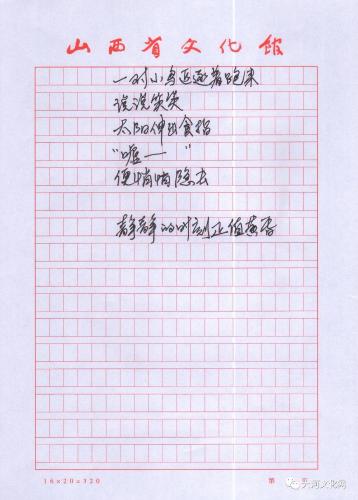 山西省文化馆
一对小鸟追逐着跑来
说说笑笑
太阳伸出食指
“嘘——”
便悄悄隐去
静静的时刻正值黄昏
16×20=320
第 页
大河文化网